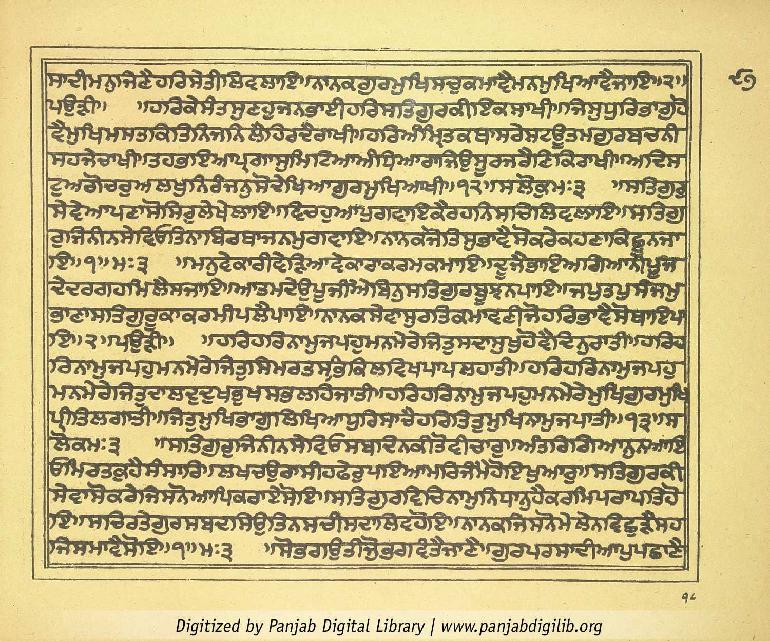 ਸਾਦੀਮਨੁਜਿਣੈਹਰਿਸੇਤੀਲਿਵਲਾਇ॥ਨਾਨਕਗੁਰਮੁਖਿਸਚੁਕਮਾਵੈਮਨਮੁਖਿਆਵੈਜਾਇ॥੨॥
ਪਉੜੀ॥ ॥ਹਰਿਕੇਸੰਤਸੁਣਹੁਜਨਭਾਈਹਰਿਸਤਿਗੁਰਕੀਇਕਸਾਖੀ॥ਜਿਸੁਧੁਰਿਭਾਗੁਹੋ
ਵੈਮੁਖਿਮਸਤਕਿਤਿਨਿਜਨਿਲੈਹਿਰਦੈਰਾਖੀ॥ਹਰਿਅੰਮ੍ਰਿਤਕਥਾਸਰੇਸਟਊਤਮਗੁਰਬਚਨੀ
ਸਹਜੇਚਾਖੀ॥ਤਹਭਇਆਪ੍ਰਗਾਸੁਮਿਟਿਆਅੰਧਿਆਰਾਜਿਉਸੂਰਜਰੈਣਿਕਿਰਾਖੀ॥ਅਦਿਸ
ਟੁਅਗੋਚਰੁਅਲਖੁਨਿਰੰਜਨੁਸੋਦੇਖਿਆਗੁਰਮੁਖਿਆਖੀ॥੧੨॥ਸਲੋਕੁਮਃ੩ ॥ਸਤਿਗੁਰੁ
ਸੇਵੇਆਪਣਾਸੋਸਿਰੁਲੇਖੈਲਾਇ॥ਵਿਚਹੁਆਪੁਗਵਾਇਕੈਰਹਨਿਸਚਿਲਿਵਲਾਇ॥ਸਤਿਗੁ
ਰੁਜਿਨੀਨਸੇਵਿਓਤਿਨਾਬਿਰਥਾਜਨਮੁਗਵਾਇ॥ਨਾਨਕਜੋਤਿਸੁਭਾਵੈਸੋਕਰੇਕਹਣਾਕਿਛੂਨਜਾ
ਇ॥੧॥ਮਃ੩ ॥ਮਨੁਵੇਕਾਰੀਵੇੜਿਆਵੇਕਾਰਾਕਰਮਕਮਾਇ॥ਦੂਜੈਭਾਇਅਗਿਆਨੀਪੂਜ
ਦੇਦਰਗਹਮਿਲੈਸਜਾਇ॥ਆਤਮਦੇਉਪੂਜੀਐਬਿਨੁਸਤਿਗੁਰਬੂਝਨਪਾਇ॥ਜਪੁਤਪੁਸੰਜਮੁ
ਭਾਣਾਸਤਿਗੁਰੂਕਾਕਰਮੀਪਲੈਪਾਇ॥ਨਾਨਕਸੇਵਾਸੁਰਤਿਕਮਾਵਣੀਜੋਹਰਿਭਾਵੈਸੋਥਾਇਪਾ
ਇ॥੨॥ਪਉੜੀ॥ ॥ਹਰਿਹਰਿਨਾਮੁਜਪਹੁਮਨਮੇਰੇਜਿਤੁਸਦਾਸੁਖੁਹੋਵੈਦਿਨੁਰਾਤੀ॥ਹਰਿਹ
ਰਿਨਾਮੁਜਪਹੁਮਨਮੇਰੇਜਿਤੁਸਿਮਰਤਸਭਿਕਿਲਵਿਖਪਾਪਲਹਾਤੀ॥ਹਰਿਹਰਿਨਾਮੁਜਪਹੁ
ਮਨਮੇਰੇਜਿਤੁਦਾਲਦੁਦੁਖਭੁਖਸਭਲਹਿਜਾਤੀ॥ਹਰਿਹਰਿਨਾਮੁਜਪਹੁਮਨਮੇਰੇਮੁਖਿਗੁਰਮੁਖਿ
ਪ੍ਰੀਤਿਲਗਾਤੀ॥ਜਿਤੁਮੁਖਿਭਾਗੁਲਿਖਿਆਧੁਰਿਸਾਚੈਹਰਿਤਿਤੁਮੁਖਿਨਾਮੁਜਪਾਤੀ॥੧੩॥ਸ
ਲੋਕਮਃ੩ ॥ਸਤਿਗੁਰੁਜਿਨੀਨਸੇਵਿਓਸਬਦਿਨਕੀਤੋਵੀਚਾਰੁ॥ਅੰਤਰਿਗਿਆਨੁਨਆਇ
ਓਮਿਰਤਕੁਹੈਸੰਸਾਰਿ॥ਲਖਚਉਰਾਸੀਹਫੇਰੁਪਇਆਮਰਿਜੰਮੈਹੋਇਖੁਆਰੁ॥ਸਤਿਗੁਰਕੀ
ਸੇਵਾਸੋਕਰੇਜਿਸਨੋਆਪਿਕਰਾਏਸੋਇ॥ਸਤਿਗੁਰਵਿਚਿਨਾਮੁਨਿਧਾਨੁਹੈਕਰਮਿਪਰਾਪਤਿਹੋ
ਇ॥ਸਚਿਰਤੇਗੁਰਸਬਦਸਿਉਤਿਨਸਚੀਸਦਾਲਿਵਹੋਇ॥ਨਾਨਕਜਿਸਨੋਮੇਲੇਨਵਿਛੁੜੈਸਹ
ਜਿਸਮਾਵੈਸੋਇ॥੧॥ਮਃ੩ ॥ਸੋਭਗਉਤੀਜੋੁਭਗਵੰਤੈਜਾਣੈ॥ਗੁਰਪਰਸਾਦੀਆਪੁਪਛਾਣੈ
੧੮
Digitized by Panjab Digital Library | www.panjabdigilib.org